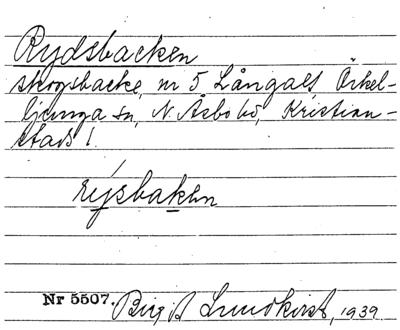 Rydsbacken
skogsbacke, nr 5 Långalt Örkel-
ljunga sn, N. Åsbo hd, Kristian-
stads l.
rýsbakən
Nr 5507. Birgit Lundkvist, 1939